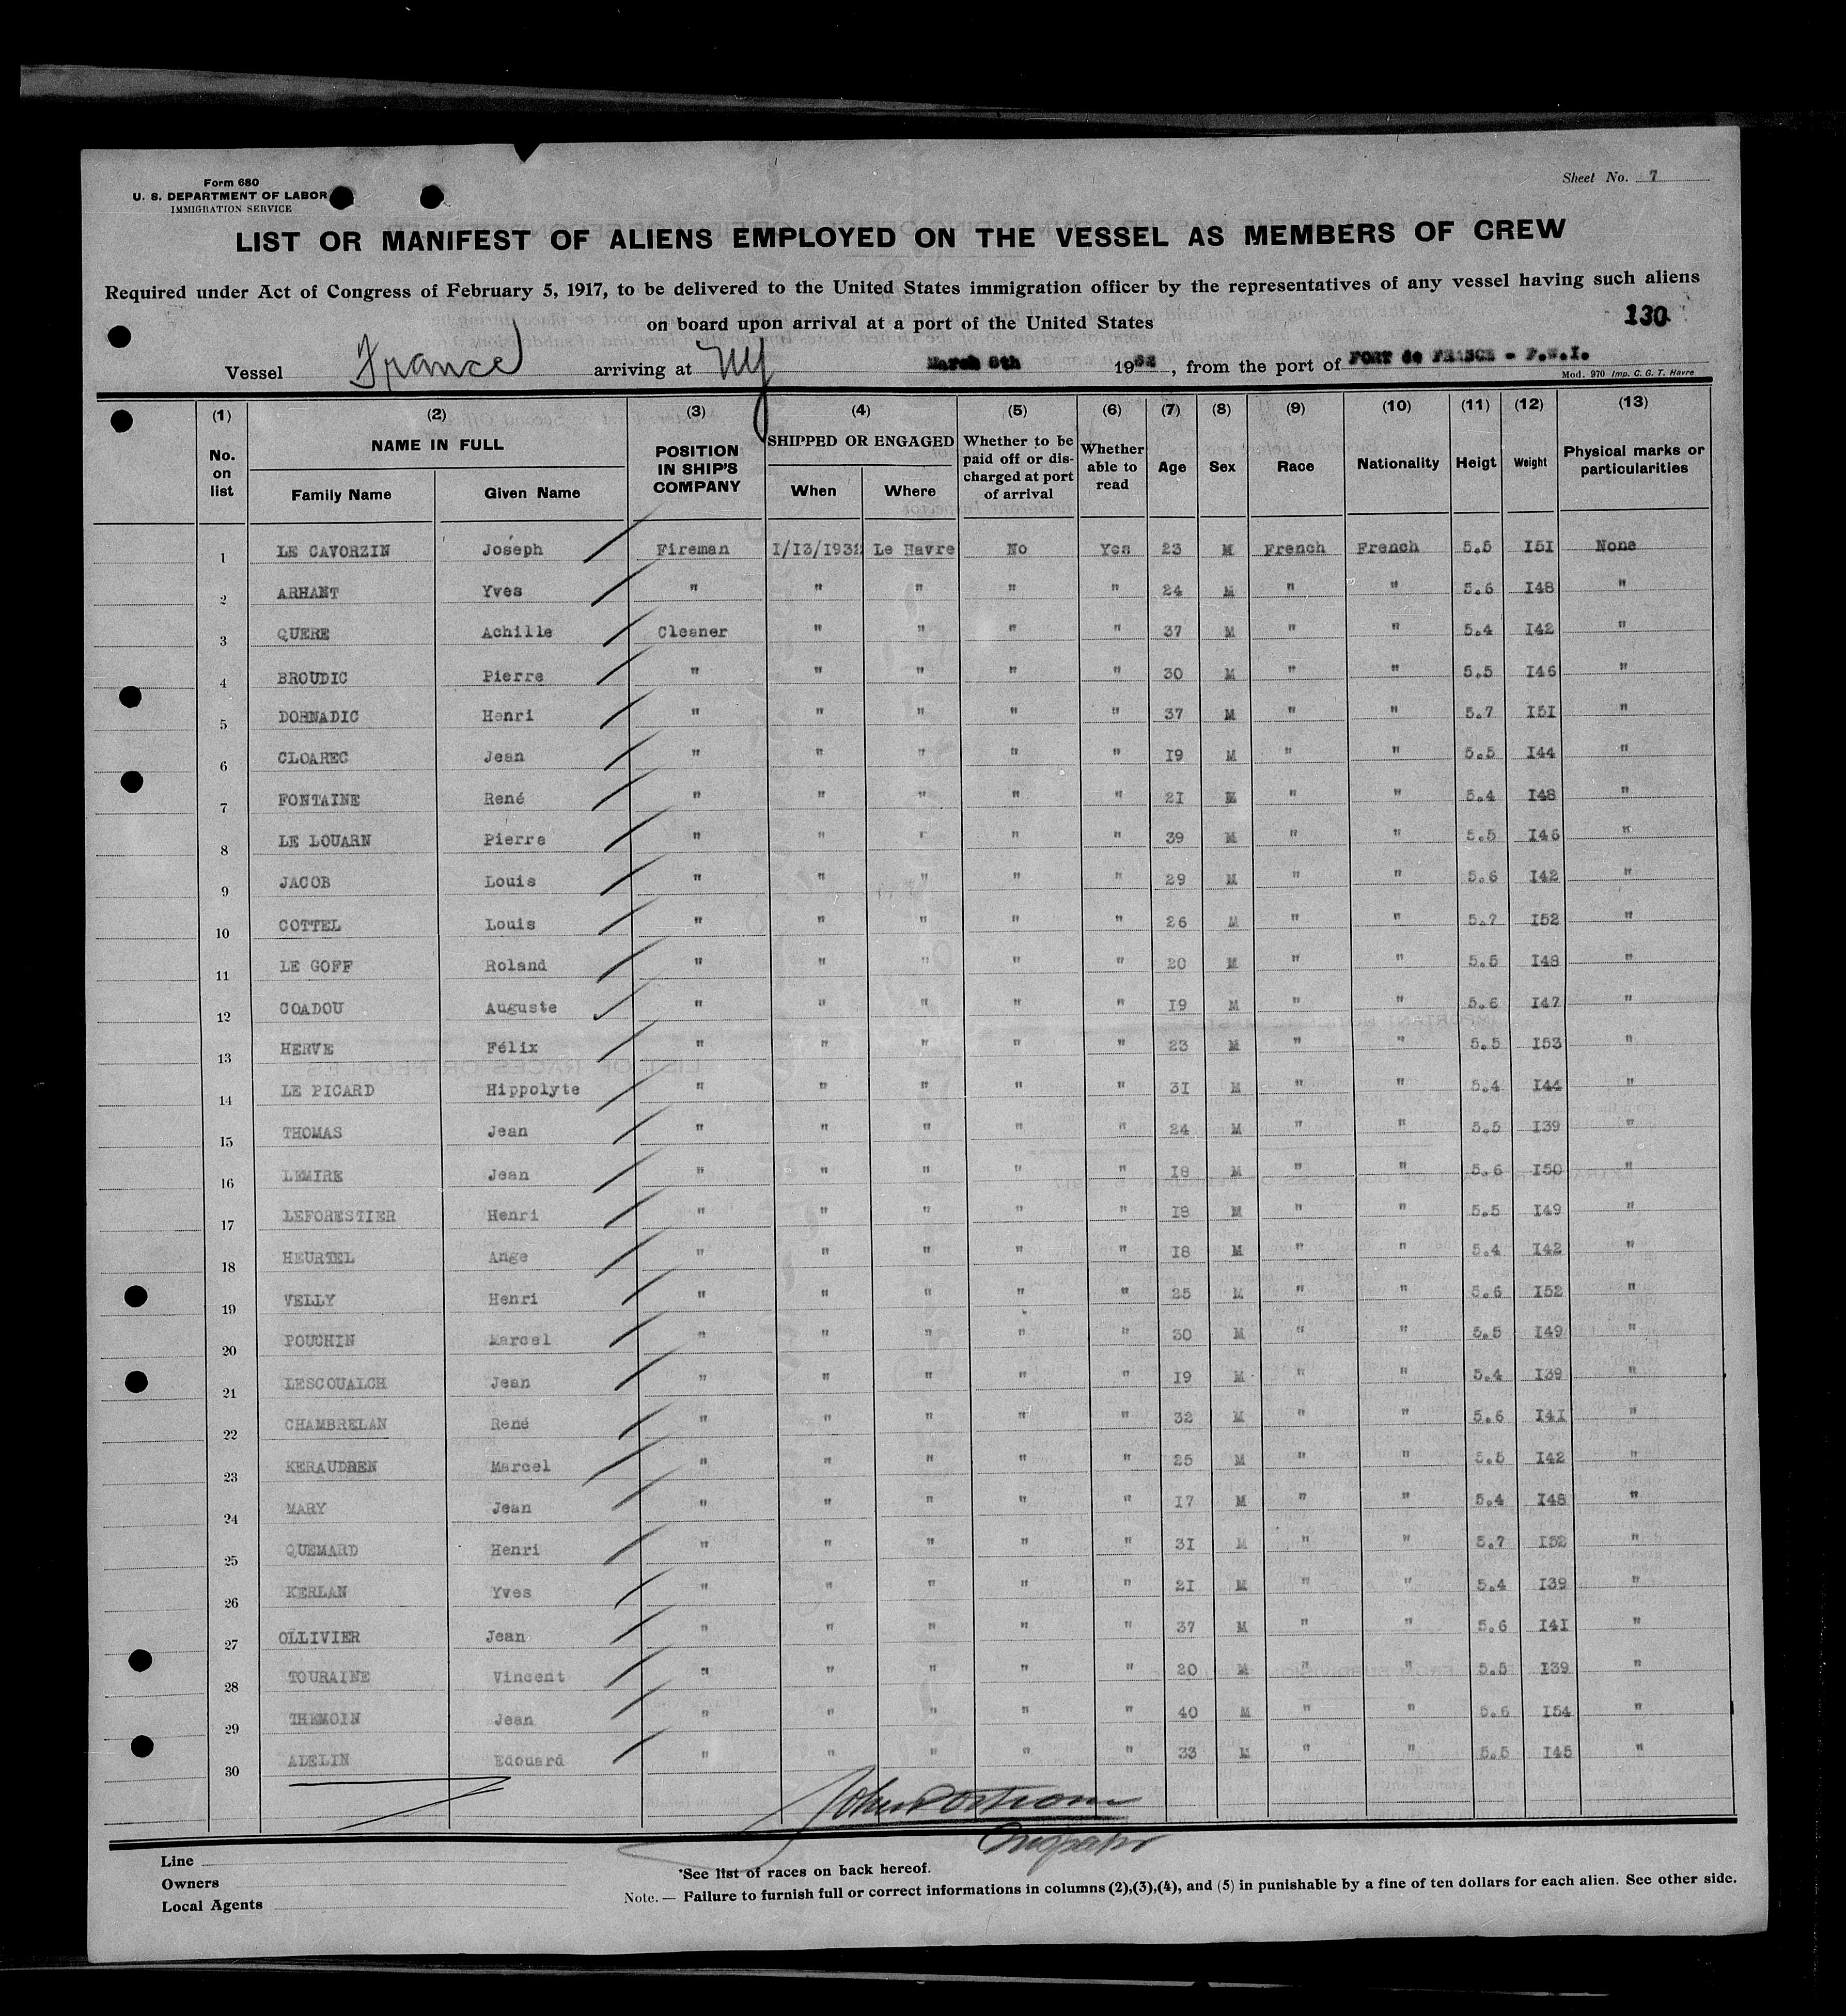 Form 680
U. S. DEPARTMENT OF LABOR
IMMIGRATION SERVICE
Sheet No. 7
LIST OR MANIFEST OF ALIENS EMPLOYED ON THE VESSEL AS MEMBERS OF CREW
Required under Act of Congress of February 5, 1917, to be delivered to the United States immigration officer by the representatives of any vessel having such aliens
on board upon arrival at a port of the United States
130
Vessel France arriving at NY March 8th 1932, from the port of FORT de FRANCE - F.W.I.
Mod. 970 Imp. C. G. T. Havre
(1) (2) (3) (4) (5) (6) (7) (8) (9) (10) (11) (12) (13)
No. on list NAME IN FULL Family Name Given Name POSITION IN SHIP'S COMPANY SHIPPED OR ENGAGED When Where Whether to be paid off or discharged at port of arrival Whether able to read Age Sex Race Nationality Heigt Weight Physical marks or particularities
1 LE CAVORZIN Joseph Fireman I/I3/1932 Le Havre No Yes 23 M French French 5.5 I5I None
2 ARHANT Yves " " " " " 24 M " " 5.6 I48 "
3 QUERE Achille Cleaner " " " " 37 M " " 5.4 I42 "
4 BROUDIC Pierre " " " " " 30 M " " 5.5 I46 "
5 DORNADIC Henri " " " " " 37 M " " 5.7 I5I "
6 CLOAREC Jean " " " " " I9 M " " 5.5 I44 "
7 FONTAINE René " " " " " 2I M " " 5.4 I48 "
8 LE LOUARN Pierre " " " " " 39 M " " 5.5 I46 "
9 JACOB Louis " " " " " 29 M " " 5.6 I42 "
10 COTTEL Louis " " " " " 26 M " " 5.7 I52 "
11 LE GOFF Roland " " " " " 20 M " " 5.5 I48 "
12 COADOU Auguste " " " " " I9 M " " 5.6 I47 "
13 HERVE Félix " " " " " 23 M " " 5.5 I53 "
14 LE PICARD Hippolyte " " " " " 3I M " " 5.4 I44 "
15 THOMAS Jean " " " " " 24 M " " 5.5 I39 "
16 LEMIRE Jean " " " " " I8 M " " 5.6 I50 "
17 LEFORESTIER Henri " " " " " I8 M " " 5.5 I49 "
18 HEURTEL Ange " " " " " I8 M " " 5.4 I42 "
19 VELLY Henri " " " " " 25 M " " 5.6 I52 "
20 POUCHIN Marcel " " " " " 30 M " " 5.5 I49 "
21 LESCOUALCH Jean " " " " " I9 M " " 5.4 I39 "
22 CHAMBRELAN René " " " " " 32 M " " 5.6 I4I "
23 KERAUDREN Marcel " " " " " 25 M " " 5.5 I42 "
24 MARY Jean " " " " " I7 M " " 5.4 I48 "
25 QUEMARD Henri " " " " " 3I M " " 5.7 I52 "
26 KERLAN Yves " " " " " 2I M " " 5.4 I39 "
27 OLLIVIER Jean " " " " " 37 M " " 5.6 I4I "
28 TOURAINE Vincent " " " " " 20 M " " 5.5 I39 "
29 THEMOIN Jean " " " " " 40 M " " 5.6 I54 "
30 ADELIN Edouard " " " " " 33 M " " 5.5 I45 "
Inspector
Line
Owners
Local Agents
*See list of races on back hereof.
Note. — Failure to furnish full or correct informations in columns (2),(3),(4), and (5) in punishable by a fine of ten dollars for each alien. See other side.